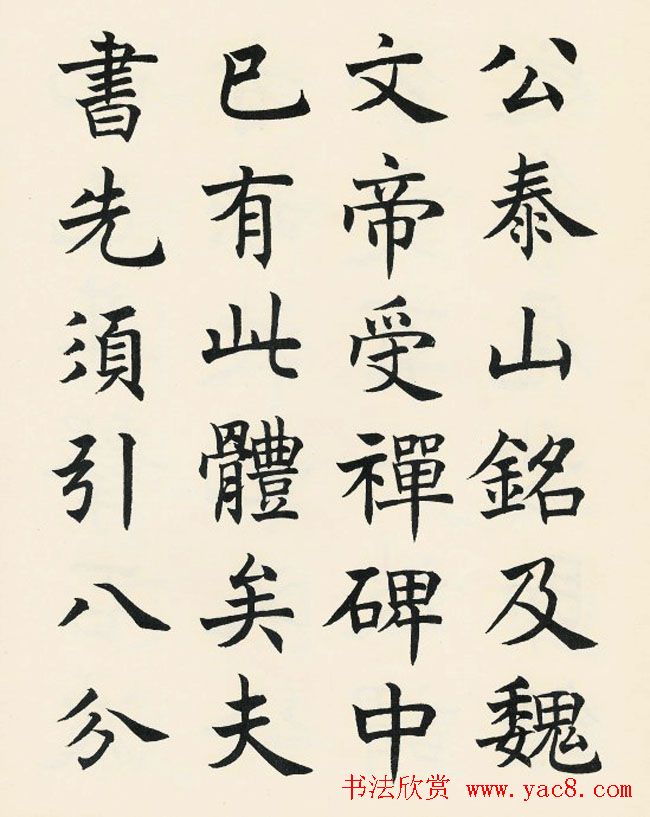 公泰山銘及魏
文帝受禪碑中
已有此體矣夫
書先須引八分
书法欣赏 www.yac8.com